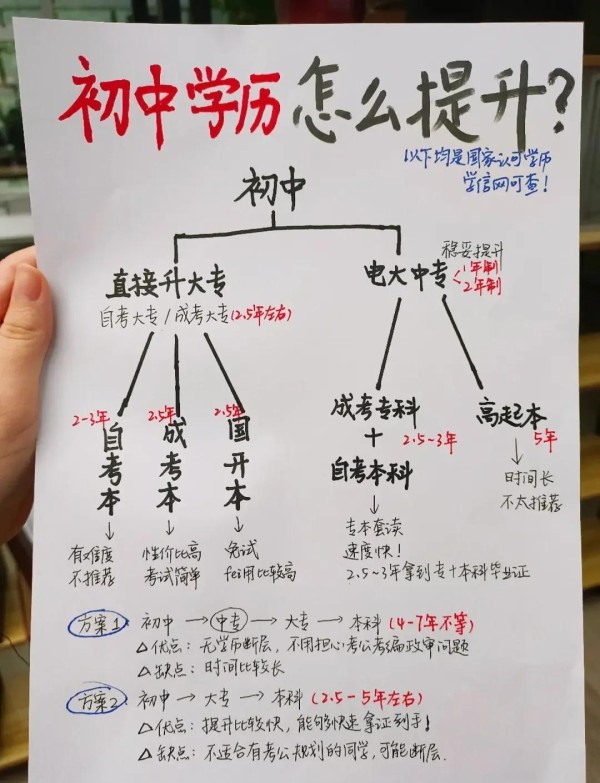 初中学历怎么提升?
以下均是国家认可学历
学信网可查!
初中
直接升大专
自考大专/成考大专(2.5年左右)
电大中专
稳妥提升
1年制
2年制
2-3年
自考本
2.5年
成考本
2.5年
国开本
成考专科
+
自考本科
2.5~3年
高起本
5年
有难度
不推荐
性价比高
考试简单
免试
fei用比较高
专本套读
速度快!
2.5~3年拿到专+本科毕业证
时间长
不太推荐
方案1 初中→中专→大专→本科(4-7年不等)
△优点:无学历断层,不用担心考公考编政审问题
△缺点:时间比较长
方案2 初中→大专→本科(2.5-5年左右)
△优点:提升比较快,能够快速拿证到手!
△缺点:不适合有考公规划的同学,可能断层.